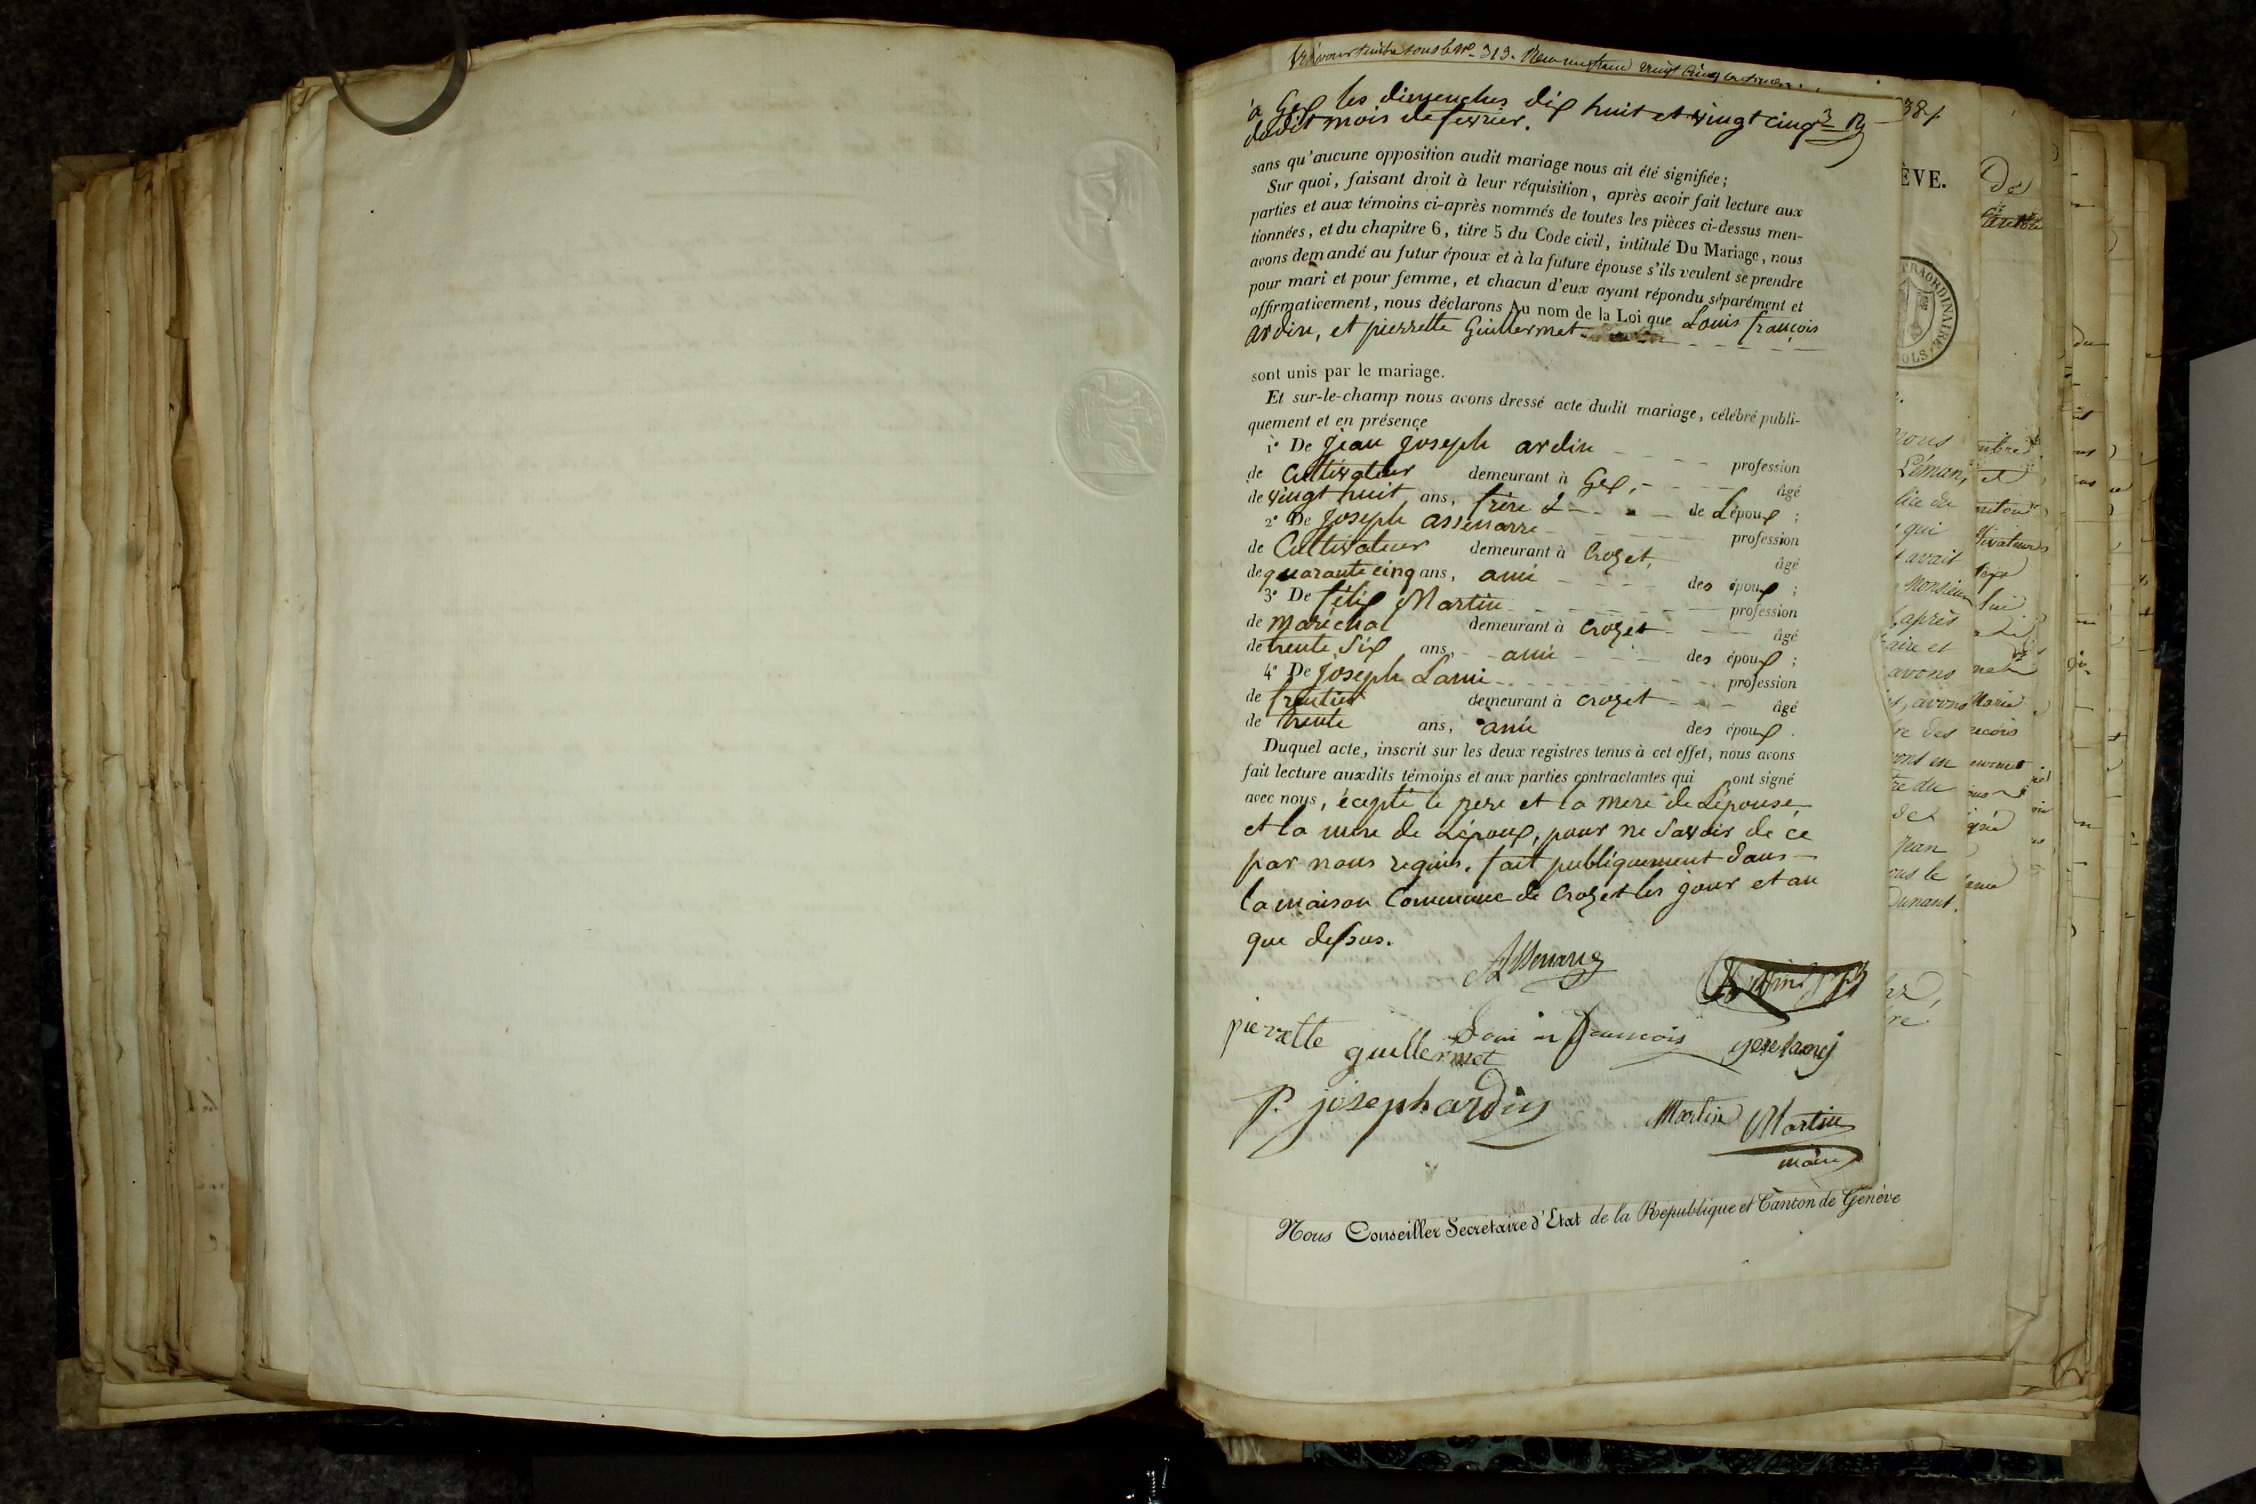 sous le No. 313.
à Gex les dimenches dix huit et vingt cinq
dudit mois de fevrier.
sans qu'aucune opposition audit mariage nous ait été signifiée;
Sur quoi, faisant droit à leur réquisition, après avoir fait lecture aux
parties et aux témoins ci-après nommés de toutes les pièces ci-dessus men-
tionnées, et du chapitre 6, titre 5 du Code civil, intitulé Du Mariage, nous
avons demandé au futur époux et à la future épouse s'ils veulent se prendre
pour mari et pour femme, et chacun d'eux ayant répondu séparément et
affirmativement, nous déclarons Au nom de la Loi que Louis françois
ardin, et pierrette Guillermet
sont unis par le mariage.
Et sur-le-champ nous avons dressé acte dudit mariage, célébré publi-
quement et en présence
1° De jean joseph ardin profession
de Cultivateur demeurant à Gex, âgé
de vingt huit ans, frère de Lépoux ;
2° De joseph assenarre profession
de Cultivateur demeurant à Crozet, âgé
de quarante cinq ans, ami des époux ;
3° De félix Martin profession
de maréchal demeurant à Crozet âgé
de trente six ans, ami des époux ;
4° De joseph Lami profession
de fruitier demeurant à crozet âgé
de trente ans, ami des époux .
Duquel acte, inscrit sur les deux registres tenus à cet effet, nous avons
fait lecture auxdits témoins et aux parties contractantes qui ont signé
avec nous, écepté le pere et la mere de Lépouse
et la mere de Lépoux, pour ne savoir de ce
par nous requis. fait publiquement dans
la maison Commune de Crozet les jour et an
que dessus.
pierrette
guillermet
françois
P. joseph ardin
Martin Martin
maire
Nous Conseiller Secrétaire d'Etat de la République et Canton de Genève
384
ÈVE.
EXTRAORDINAIRE
SOLS
De
nous
Léman, et
qui
avait
Monsieur
après
aire et
avons
avons Marie
Jean
Dunant.